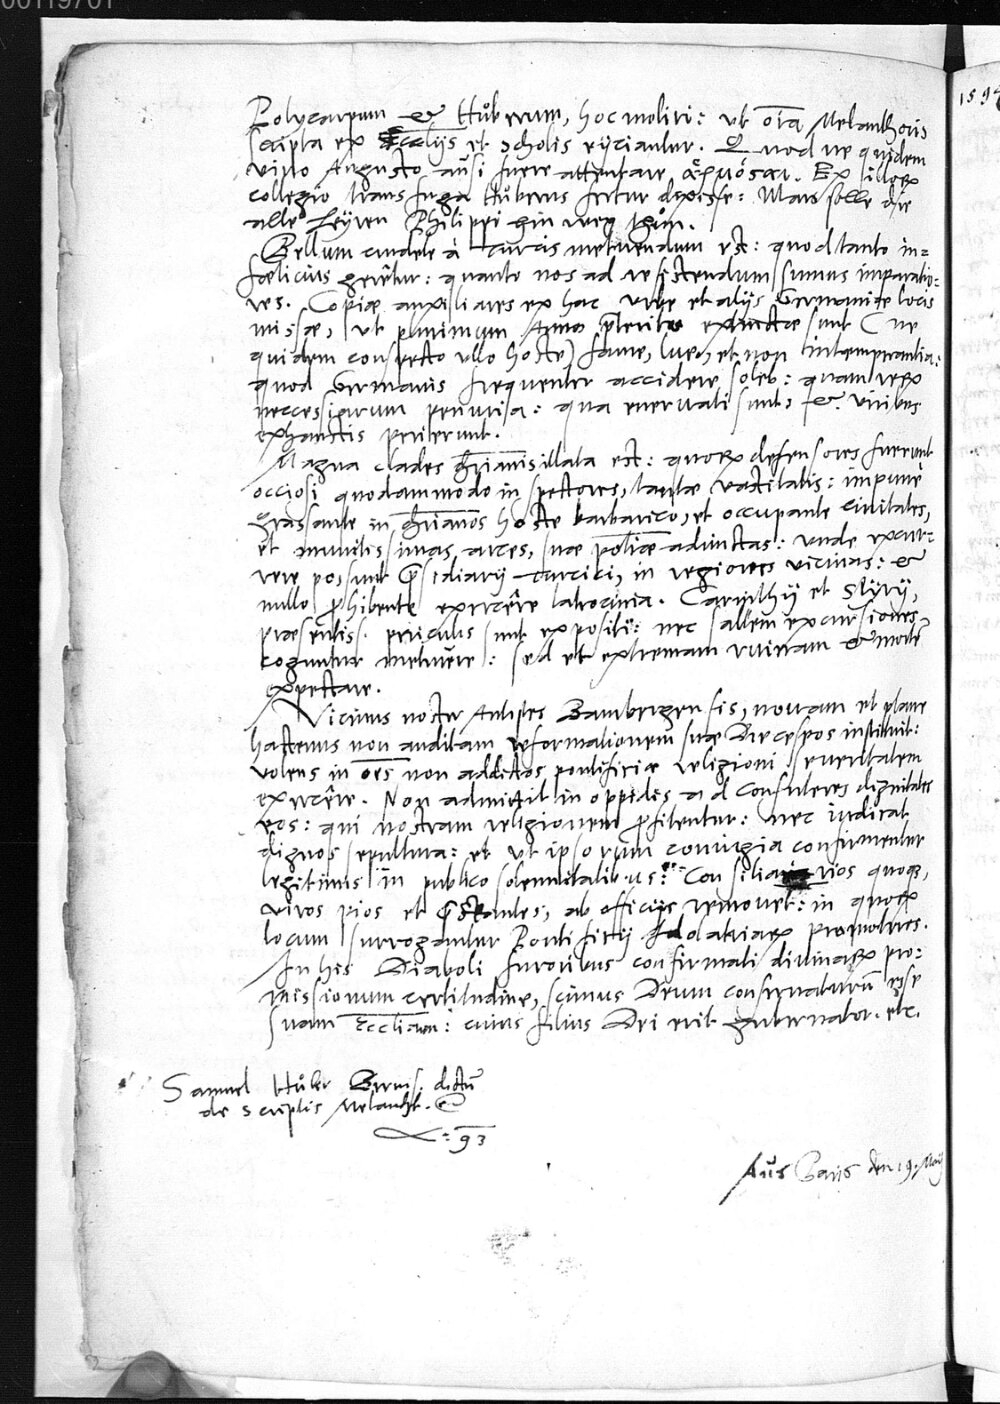 00119701
Polycarpum & Hůberum, hoc moliri: ut oīa Melanthonis
scripta ex Ecclijs et scholis eijciantur. Quod ne quidem
vivo Augusto ausi fuere attentare,
collegio transfuga Hůberus fertur dixisse: Man solle die
alle Leÿren Philippi hin weg thůn.
Bellum crudele à Turcis metuendum est: quod tanto in=
fœlicius gerêtur: quanto nos ad resistendum sumus imparatio=
res. Copiæ auxiliares ex hac urbe et alijs Germaniæ locis
missæ, ut plurimum Anno p̄terito extinctæ sunt (ne
quidem conspecto ullo hoste) fame, lue, et non intemperantia:
quod Germanis frequenter accidere soleb: quam rerum
necessariarum penuria: qua enervati sunt, &. viribus
exhaustis perierunt.
Magna clades Chr̄ianis illata est: quorum defensores fuerunt
occiosi quodammodo inspectores, tantæ vastitatis: impunè
grassante in Chr̄ianos hoste barbarico, et occupante civitates,
et munitissimas arces, suæ potiæ adiunctas: unde excur=
rere possunt p̄sidiarij turcici, in regiones vicinas: &
nullo p̱hibente exercêre latrocinia. Carinthij et Stÿrij,
præsentis. periculis sunt expositi: nec saltem excursiones
coguntur metuere: sed et extremam ruinam & mortē
expectare.
Vicinus noster Antistes Bambergensis, novam et plane
hactenus non auditam reformationem suæ Diœceseos instituit:
volens in oēs non addictos pontificiæ religioni severitatem
exercêre. Non admittit in oppidis ad Consulares dignitates
eos: qui nostram religionem p̱fitentur: nec iudicat
dignos sepultura: et ut ipsorum coniugia confirmentur
legitimis in publico solennitatibus: Consiliarios quoque,
viros pios et p̄stantes, ab officijs removet: in quorum
locum surrogantur Pontificij Idolatriarum promotores.
In his Diaboli furoribus confirmati divinarum pro=
missionum certitudine, scimus Deum conservaturum esse
suam Eccliam: cuius filius Dei erit gubernator. etc.
Samuel Hůber Bernēs. dictū
de scriptis Melanth.
93
Aůs Baris den 19. Maij
159